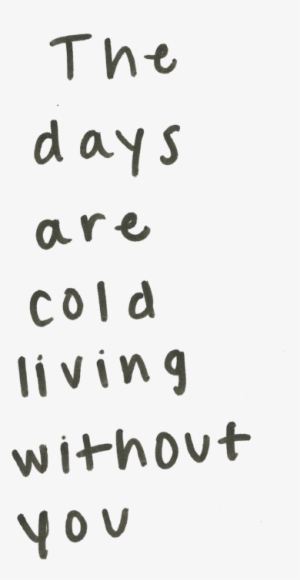 The
days
are
cold
living
without
you